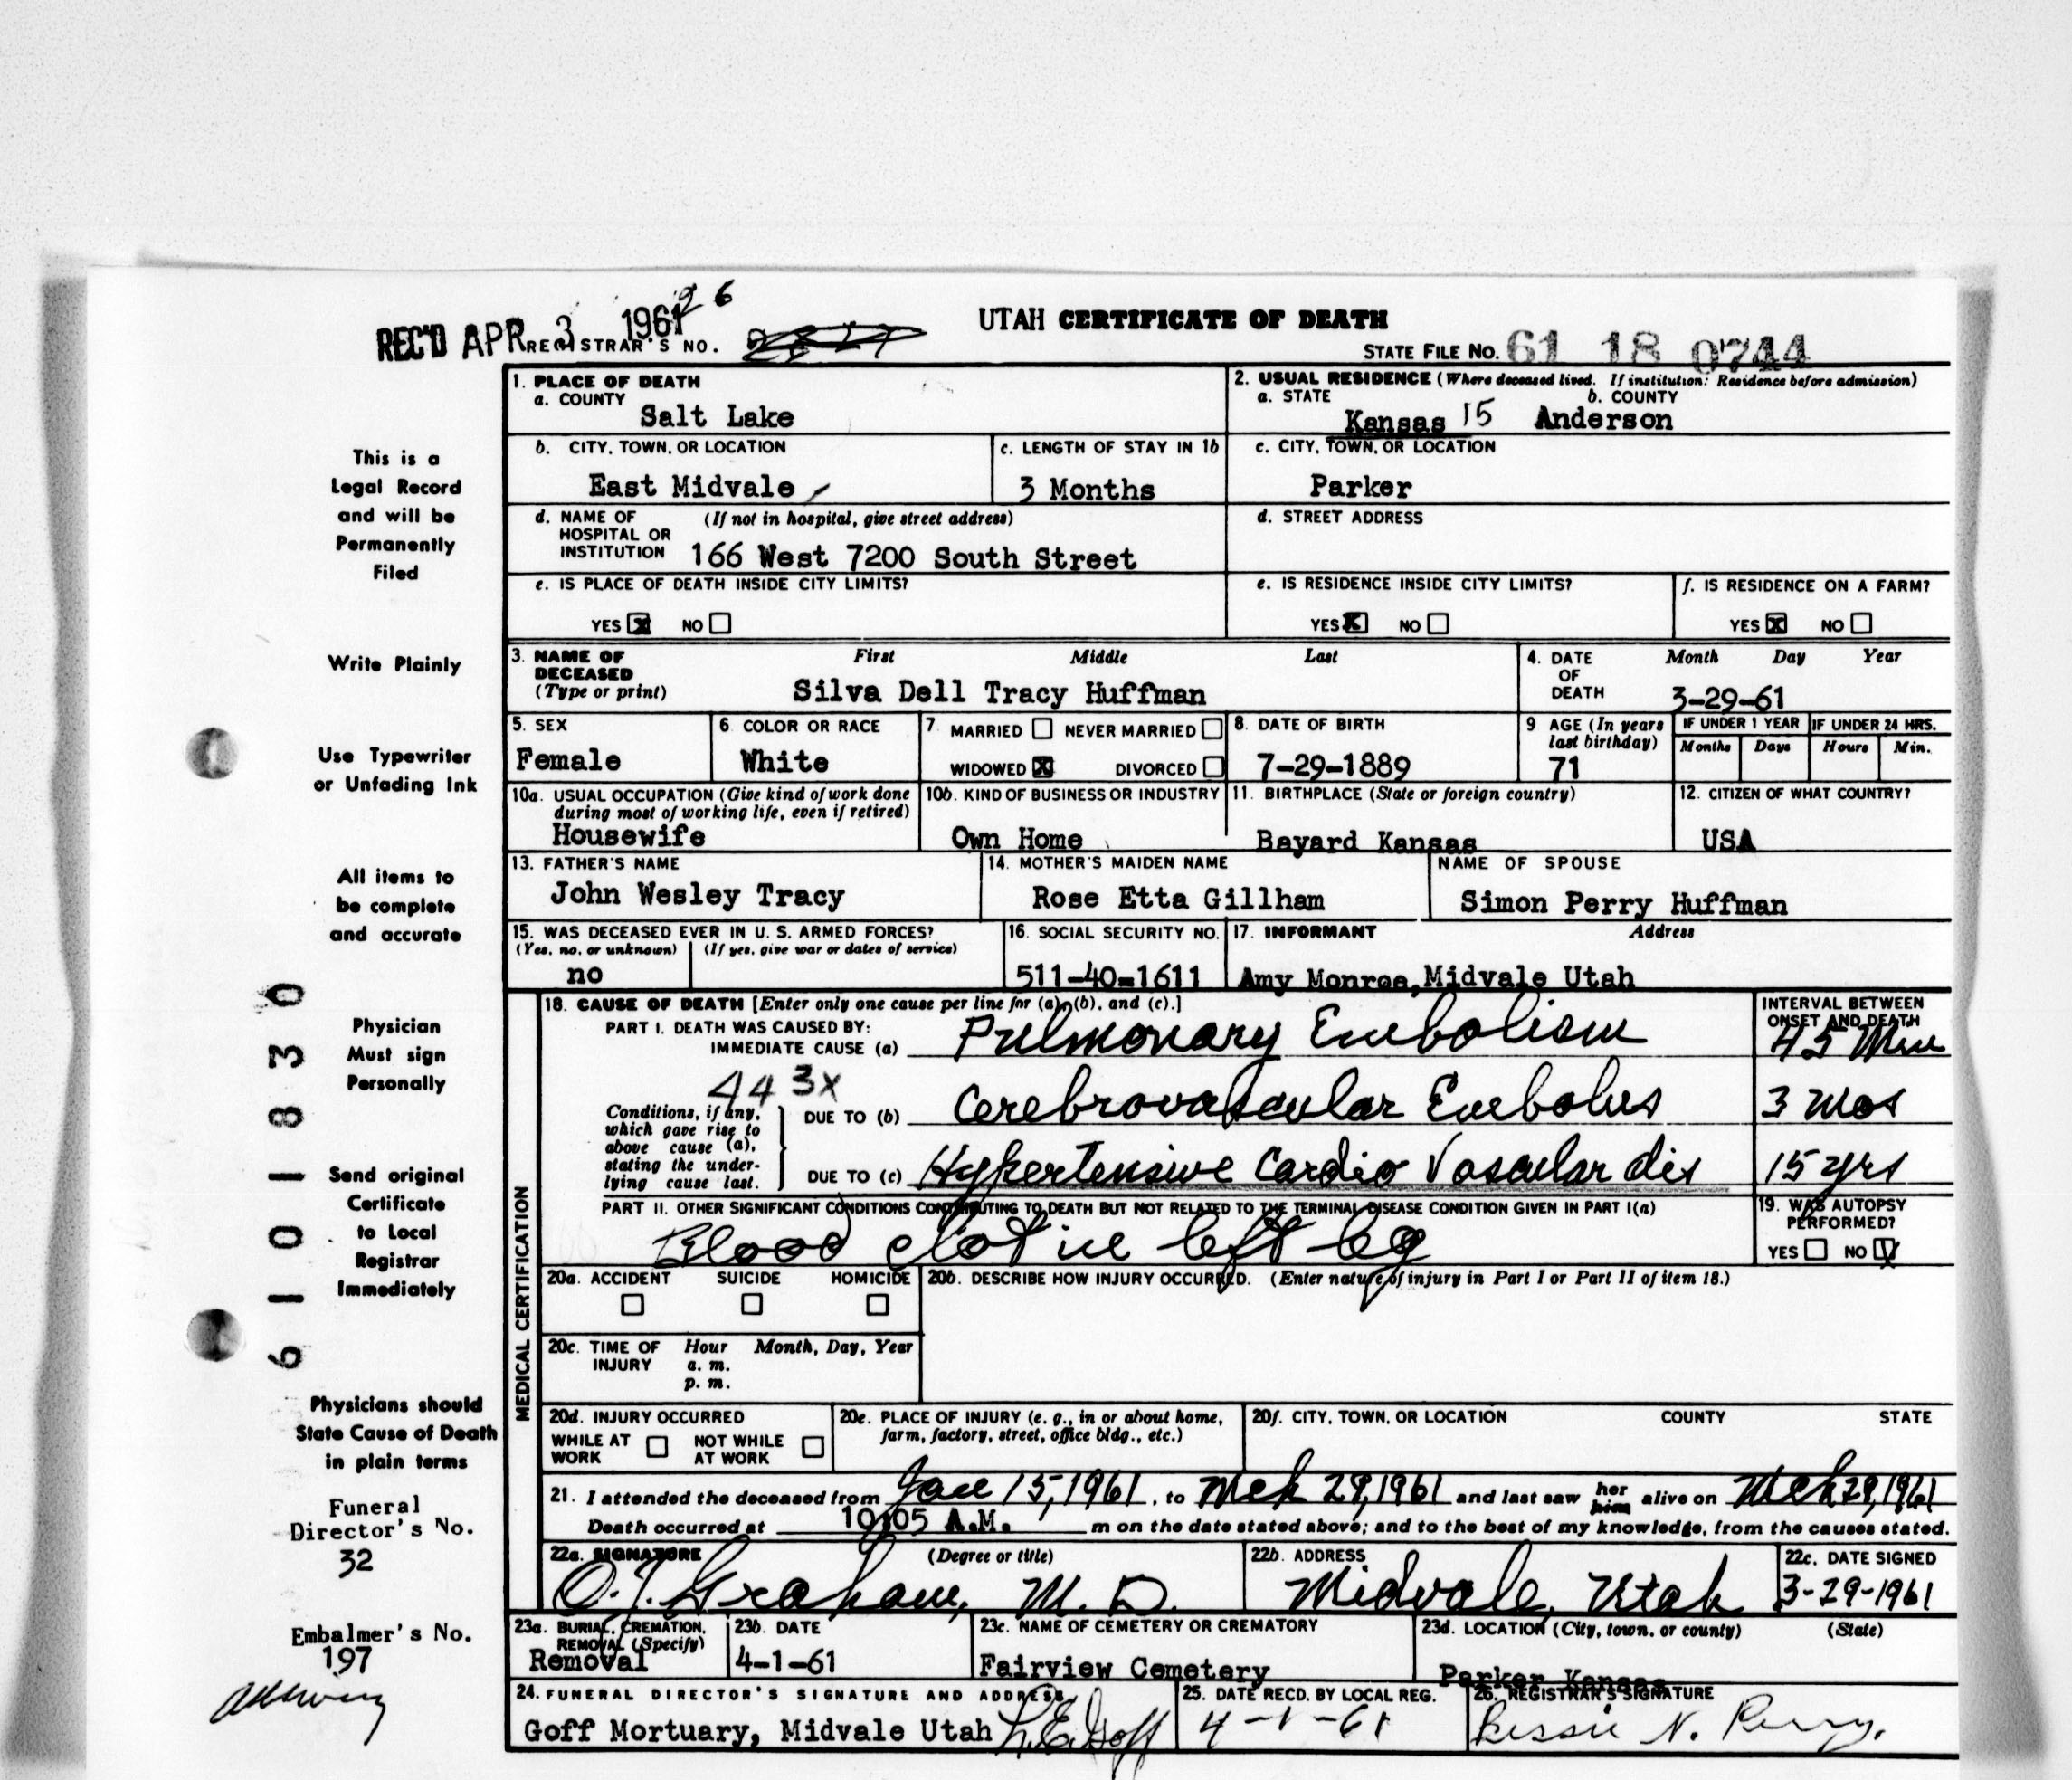 REC'D APR 3 1961 26
UTAH CERTIFICATE OF DEATH
REGISTRAR'S NO.
STATE FILE NO. 61 18 0744
1. PLACE OF DEATH
a. COUNTY
Salt Lake
2. USUAL RESIDENCE (Where deceased lived. If institution: Residence before admission)
a. STATE b. COUNTY
Kansas 15 Anderson
b. CITY, TOWN, OR LOCATION
East Midvale
c. LENGTH OF STAY IN 1b
3 Months
c. CITY, TOWN, OR LOCATION
Parker
d. NAME OF HOSPITAL OR INSTITUTION (If not in hospital, give street address)
166 West 7200 South Street
d. STREET ADDRESS
e. IS PLACE OF DEATH INSIDE CITY LIMITS?
YES X NO
e. IS RESIDENCE INSIDE CITY LIMITS?
YES X NO
f. IS RESIDENCE ON A FARM?
YES X NO
3. NAME OF DECEASED (Type or print) First Middle Last
Silva Dell Tracy Huffman
4. DATE OF DEATH Month Day Year
3-29-61
5. SEX
Female
6. COLOR OR RACE
White
7. MARRIED NEVER MARRIED
WIDOWED X DIVORCED
8. DATE OF BIRTH
7-29-1889
9 AGE (In years last birthday)
71
IF UNDER 1 YEAR IF UNDER 24 HRS.
Months Days Hours Min.
10a. USUAL OCCUPATION (Give kind of work done during most of working life, even if retired)
Housewife
10b. KIND OF BUSINESS OR INDUSTRY
Own Home
11. BIRTHPLACE (State or foreign country)
Bayard Kansas
12. CITIZEN OF WHAT COUNTRY?
USA
13. FATHER'S NAME
John Wesley Tracy
14. MOTHER'S MAIDEN NAME
Rose Etta Gillham
NAME OF SPOUSE
Simon Perry Huffman
15. WAS DECEASED EVER IN U. S. ARMED FORCES?
(Yes, no, or unknown) (If yes, give war or dates of service)
no
16. SOCIAL SECURITY NO.
511-40-1611
17. INFORMANT Address
Amy Monroe, Midvale Utah
MEDICAL CERTIFICATION
18. CAUSE OF DEATH [Enter only one cause per line for (a), (b), and (c).]
INTERVAL BETWEEN ONSET AND DEATH
PART I. DEATH WAS CAUSED BY:
IMMEDIATE CAUSE (a) Pulmonary Embolism 45 Min
443X
Conditions, if any, which gave rise to above cause (a), stating the underlying cause last.
DUE TO (b) Cerebrovascular Embolus 3 Mos
DUE TO (c) Hypertensive Cardio Vascular dis 15 yrs
PART II. OTHER SIGNIFICANT CONDITIONS CONTRIBUTING TO DEATH BUT NOT RELATED TO THE TERMINAL DISEASE CONDITION GIVEN IN PART I(a)
Blood clot in left leg
19. WAS AUTOPSY PERFORMED?
YES NO
20a. ACCIDENT SUICIDE HOMICIDE
20b. DESCRIBE HOW INJURY OCCURRED. (Enter nature of injury in Part I or Part II of item 18.)
20c. TIME OF INJURY Hour Month, Day, Year
a. m.
p. m.
20d. INJURY OCCURRED
WHILE AT WORK NOT WHILE AT WORK
20e. PLACE OF INJURY (e. g., in or about home, farm, factory, street, office bldg., etc.)
20f. CITY, TOWN, OR LOCATION COUNTY STATE
21. I attended the deceased from Jan 15, 1961, to Mch 29, 1961 and last saw her him alive on Mch 29, 1961
Death occurred at 10:05 A.M. m on the date stated above; and to the best of my knowledge, from the causes stated.
22a. SIGNATURE (Degree or title)
O. J. Graham, M. D.
22b. ADDRESS
Midvale, Utah
22c. DATE SIGNED
3-29-1961
23a. BURIAL, CREMATION, REMOVAL (Specify)
Removal
23b. DATE
4-1-61
23c. NAME OF CEMETERY OR CREMATORY
Fairview Cemetery
23d. LOCATION (City, town, or county) (State)
Parker Kansas
24. FUNERAL DIRECTOR'S SIGNATURE AND ADDRESS
Goff Mortuary, Midvale Utah L. E. Goff
25. DATE RECD. BY LOCAL REG.
4-1-61
26. REGISTRAR'S SIGNATURE
Bessie N. Perry.
This is a
Legal Record
and will be
Permanently
Filed
Write Plainly
Use Typewriter
or Unfading Ink
All items to
be complete
and accurate
Physician
Must sign
Personally
Send original
Certificate
to Local
Registrar
Immediately
Physicians should
State Cause of Death
in plain terms
Funeral
Director's No.
32
Embalmer's No.
197
6101830